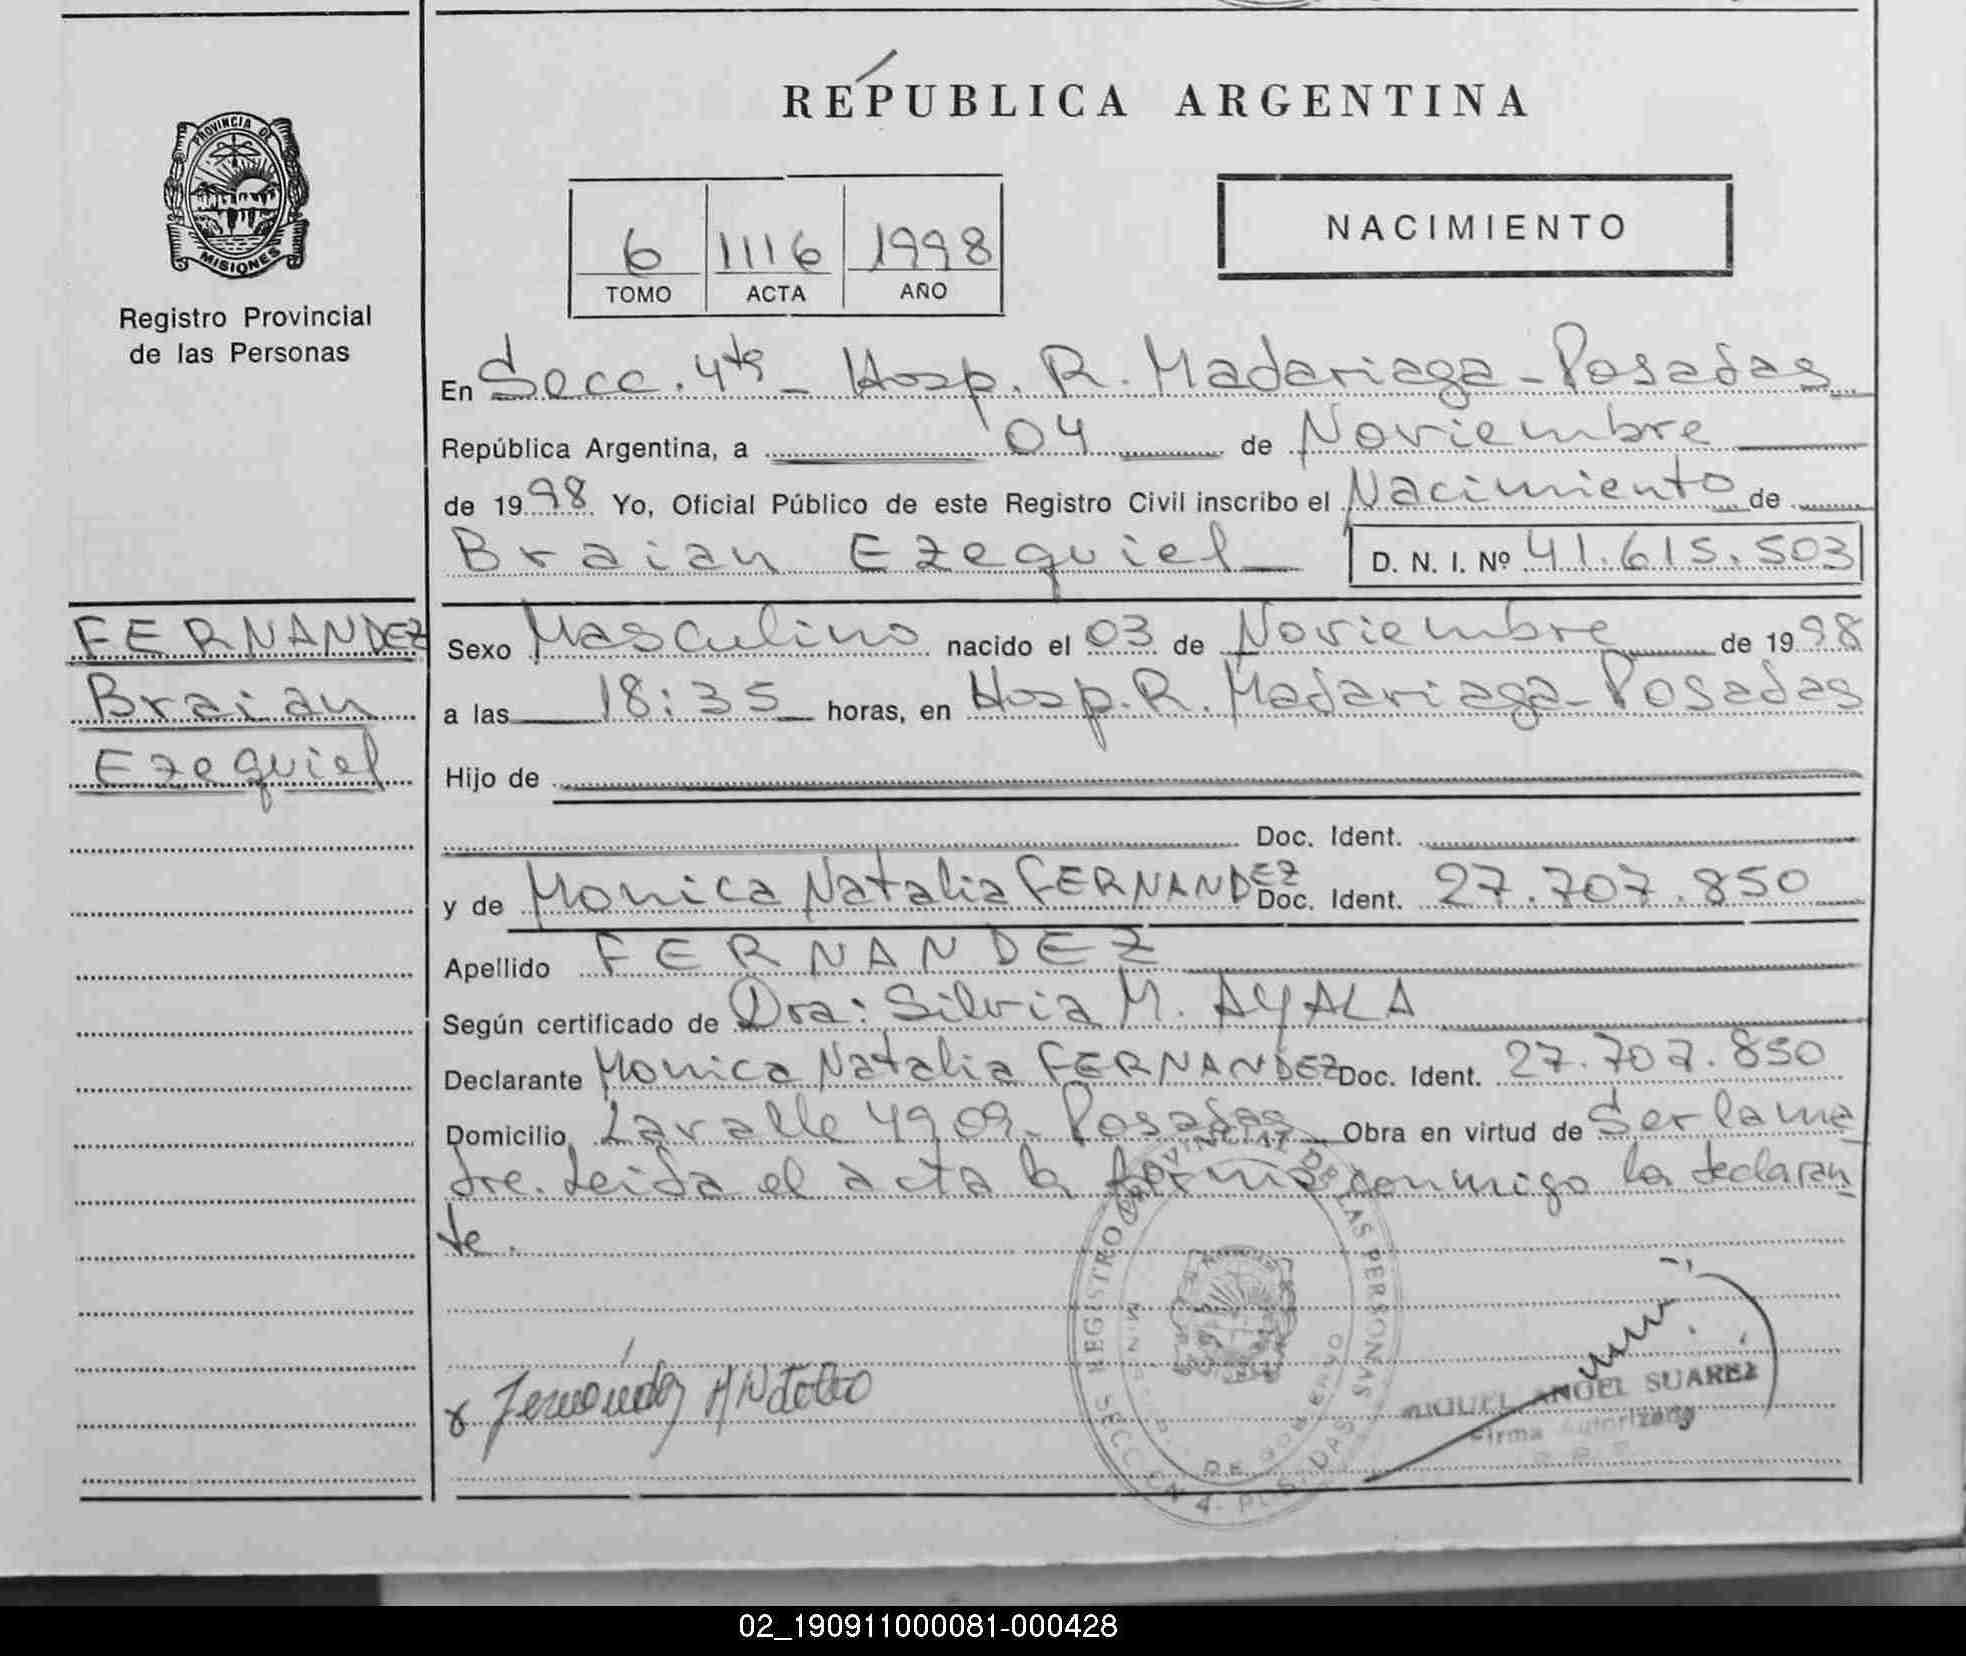 REPUBLICA ARGENTINA
PROVINCIA DE
MISIONES
Registro Provincial
de las Personas
6 1116 1998
TOMO ACTA AÑO
NACIMIENTO
En Secc. 4ta - Hosp. R. Madariaga - Posadas
República Argentina, a 04 de Noviembre
de 1998 Yo, Oficial Público de este Registro Civil inscribo el Nacimiento de
Braian Ezequiel D. N. I. Nº 41.615.503
FERNANDEZ
Braian
Ezequiel
Sexo Masculino nacido el 03 de Noviembre de 1998
a las 18:35 horas, en Hosp. R. Madariaga - Posadas
Hijo de
Doc. Ident.
y de Monica Natalia FERNANDEZ Doc. Ident. 27.707.850
Apellido FERNANDEZ
Según certificado de Dra: Silvia M. AYALA
Declarante Monica Natalia FERNANDEZ Doc. Ident. 27.707.850
Domicilio Lavalle 4909 - Posadas Obra en virtud de Ser la ma
dre. Leida el acta la firma conmigo la declaran
te.
REGISTRO PROVINCIAL DE LAS PERSONAS
SECCION 4 - POSADAS
DE GOBIERNO
Fernández
MIGUEL ANGEL SUAREZ
Firma Autorizada
02_190911000081-000428